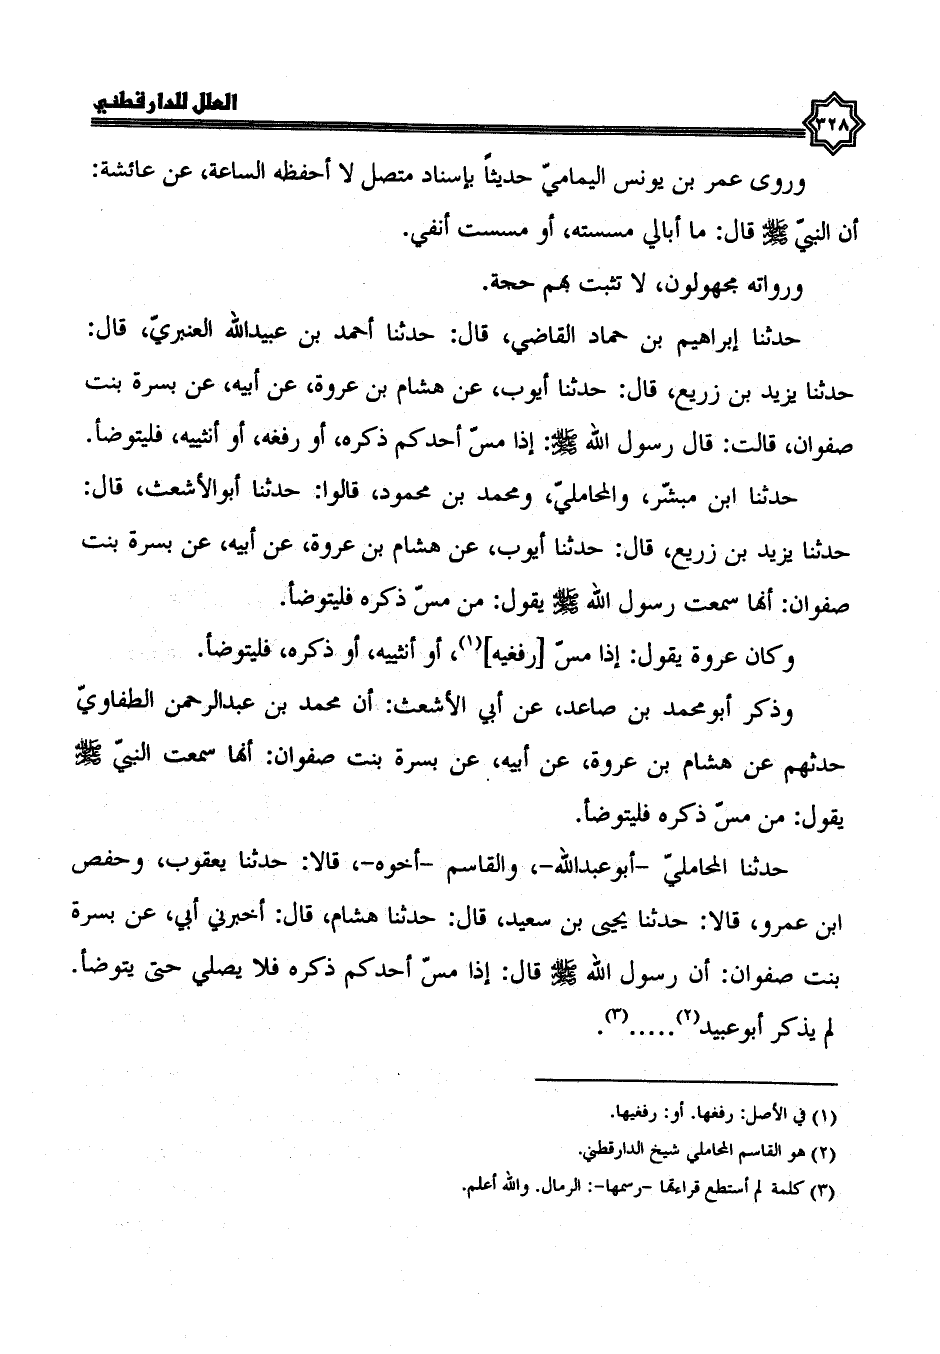 العلل للدارقطني
٣٢٨
وروى عمر بن يونس اليماميّ حديثاً بإسناد متصل لا أحفظه الساعة، عن عائشة:
أن النبيّ ﷺ قال: ما أبالي مسسته، أو مسست أنفي.
ورواته مجهولون، لا تثبت بهم حجة.
حدثنا إبراهيم بن حماد القاضي، قال: حدثنا أحمد بن عبيدالله العنبريّ، قال:
حدثنا يزيد بن زريع، قال: حدثنا أيوب، عن هشام بن عروة، عن أبيه، عن بسرة بنت
صفوان، قالت: قال رسول الله ﷺ: إذا مسّ أحدكم ذكره، أو رفغه، أو أنثييه، فليتوضأ.
حدثنا ابن مبشّر، والمحامليّ، ومحمد بن محمود، قالوا: حدثنا أبوالأشعث، قال:
حدثنا يزيد بن زريع، قال: حدثنا أيوب، عن هشام بن عروة، عن أبيه، عن بسرة بنت
صفوان: أنها سمعت رسول الله ﷺ يقول: من مسّ ذكره فليتوضأ.
وكان عروة يقول: إذا مسّ [رفغيه](١)، أو أنثييه، أو ذكره، فليتوضأ.
وذكر أبومحمد بن صاعد، عن أبي الأشعث: أن محمد بن عبدالرحمن الطفاويّ
حدثهم عن هشام بن عروة، عن أبيه، عن بسرة بنت صفوان: أنها سمعت النبيّ ﷺ
يقول: من مسّ ذكره فليتوضأ.
حدثنا المحامليّ -أبوعبدالله-، والقاسم -أخوه-، قالا: حدثنا يعقوب، وحفص
ابن عمرو، قالا: حدثنا يحيى بن سعيد، قال: حدثنا هشام، قال: أخبرني أبي، عن بسرة
بنت صفوان: أن رسول الله ﷺ قال: إذا مسّ أحدكم ذكره فلا يصلي حتى يتوضأ.
لم يذكر أبوعبيد(٢).....(٣).
(١) في الأصل: رفغها. أو: رفغيها.
(٢) هو القاسم المحاملي شيخ الدارقطني.
(٣) كلمة لم أستطع قراءتها -رسمها-: الرمال. والله أعلم.